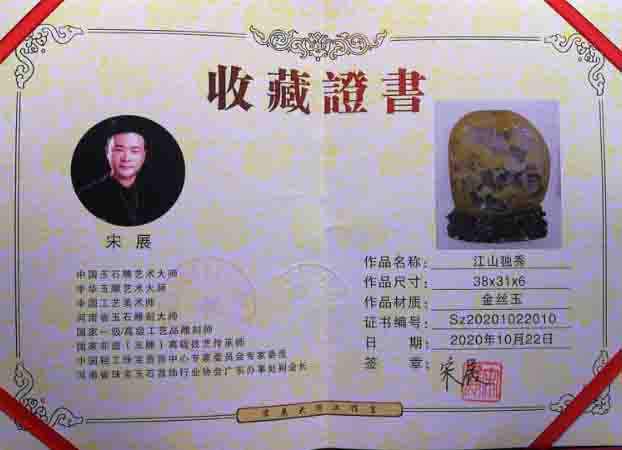 收藏證書
宋 展
中国玉石雕艺术大师
中华玉雕艺术大师
中国工艺美术师
河南省玉石雕刻大师
国家一级/高级工艺品雕刻师
国家非遗（玉雕）高级技艺传承师
中国轻工珠宝首饰中心专家委员会专家委员
河南省珠宝玉石首饰行业协会广东办事处副会长
作品名称：江山独秀
作品尺寸：38x31x6
作品材质：金丝玉
证书编号：Sz20201022010
日 期：2020年10月22日
签 章：宋展
宋展大师工作室